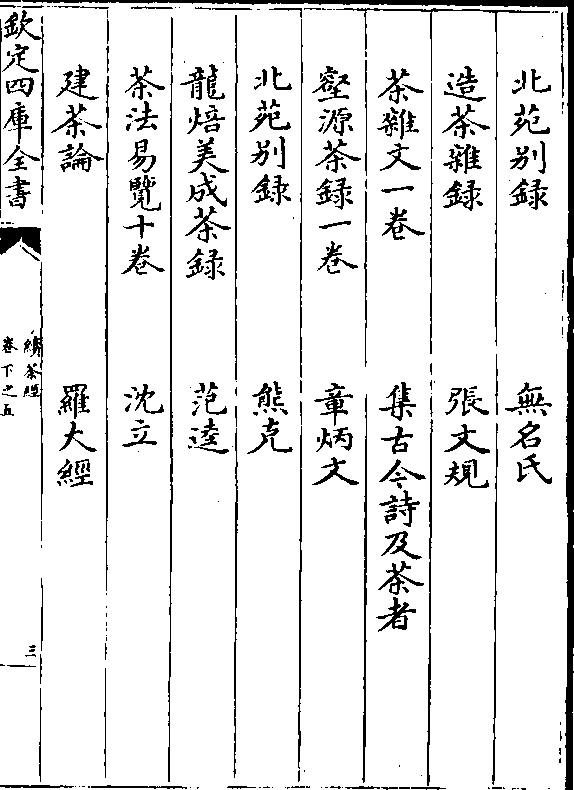 北苑别録　無名氏
造茶雜録　張文規
茶雜文一卷　集古今詩及茶者
壑源茶録一卷　章炳文
北苑别録　熊克
龍焙美成茶録　范逵
茶法易覽十卷　沈立
建茶論　羅大經
欽定四庫全書
續茶經
卷下之五
三